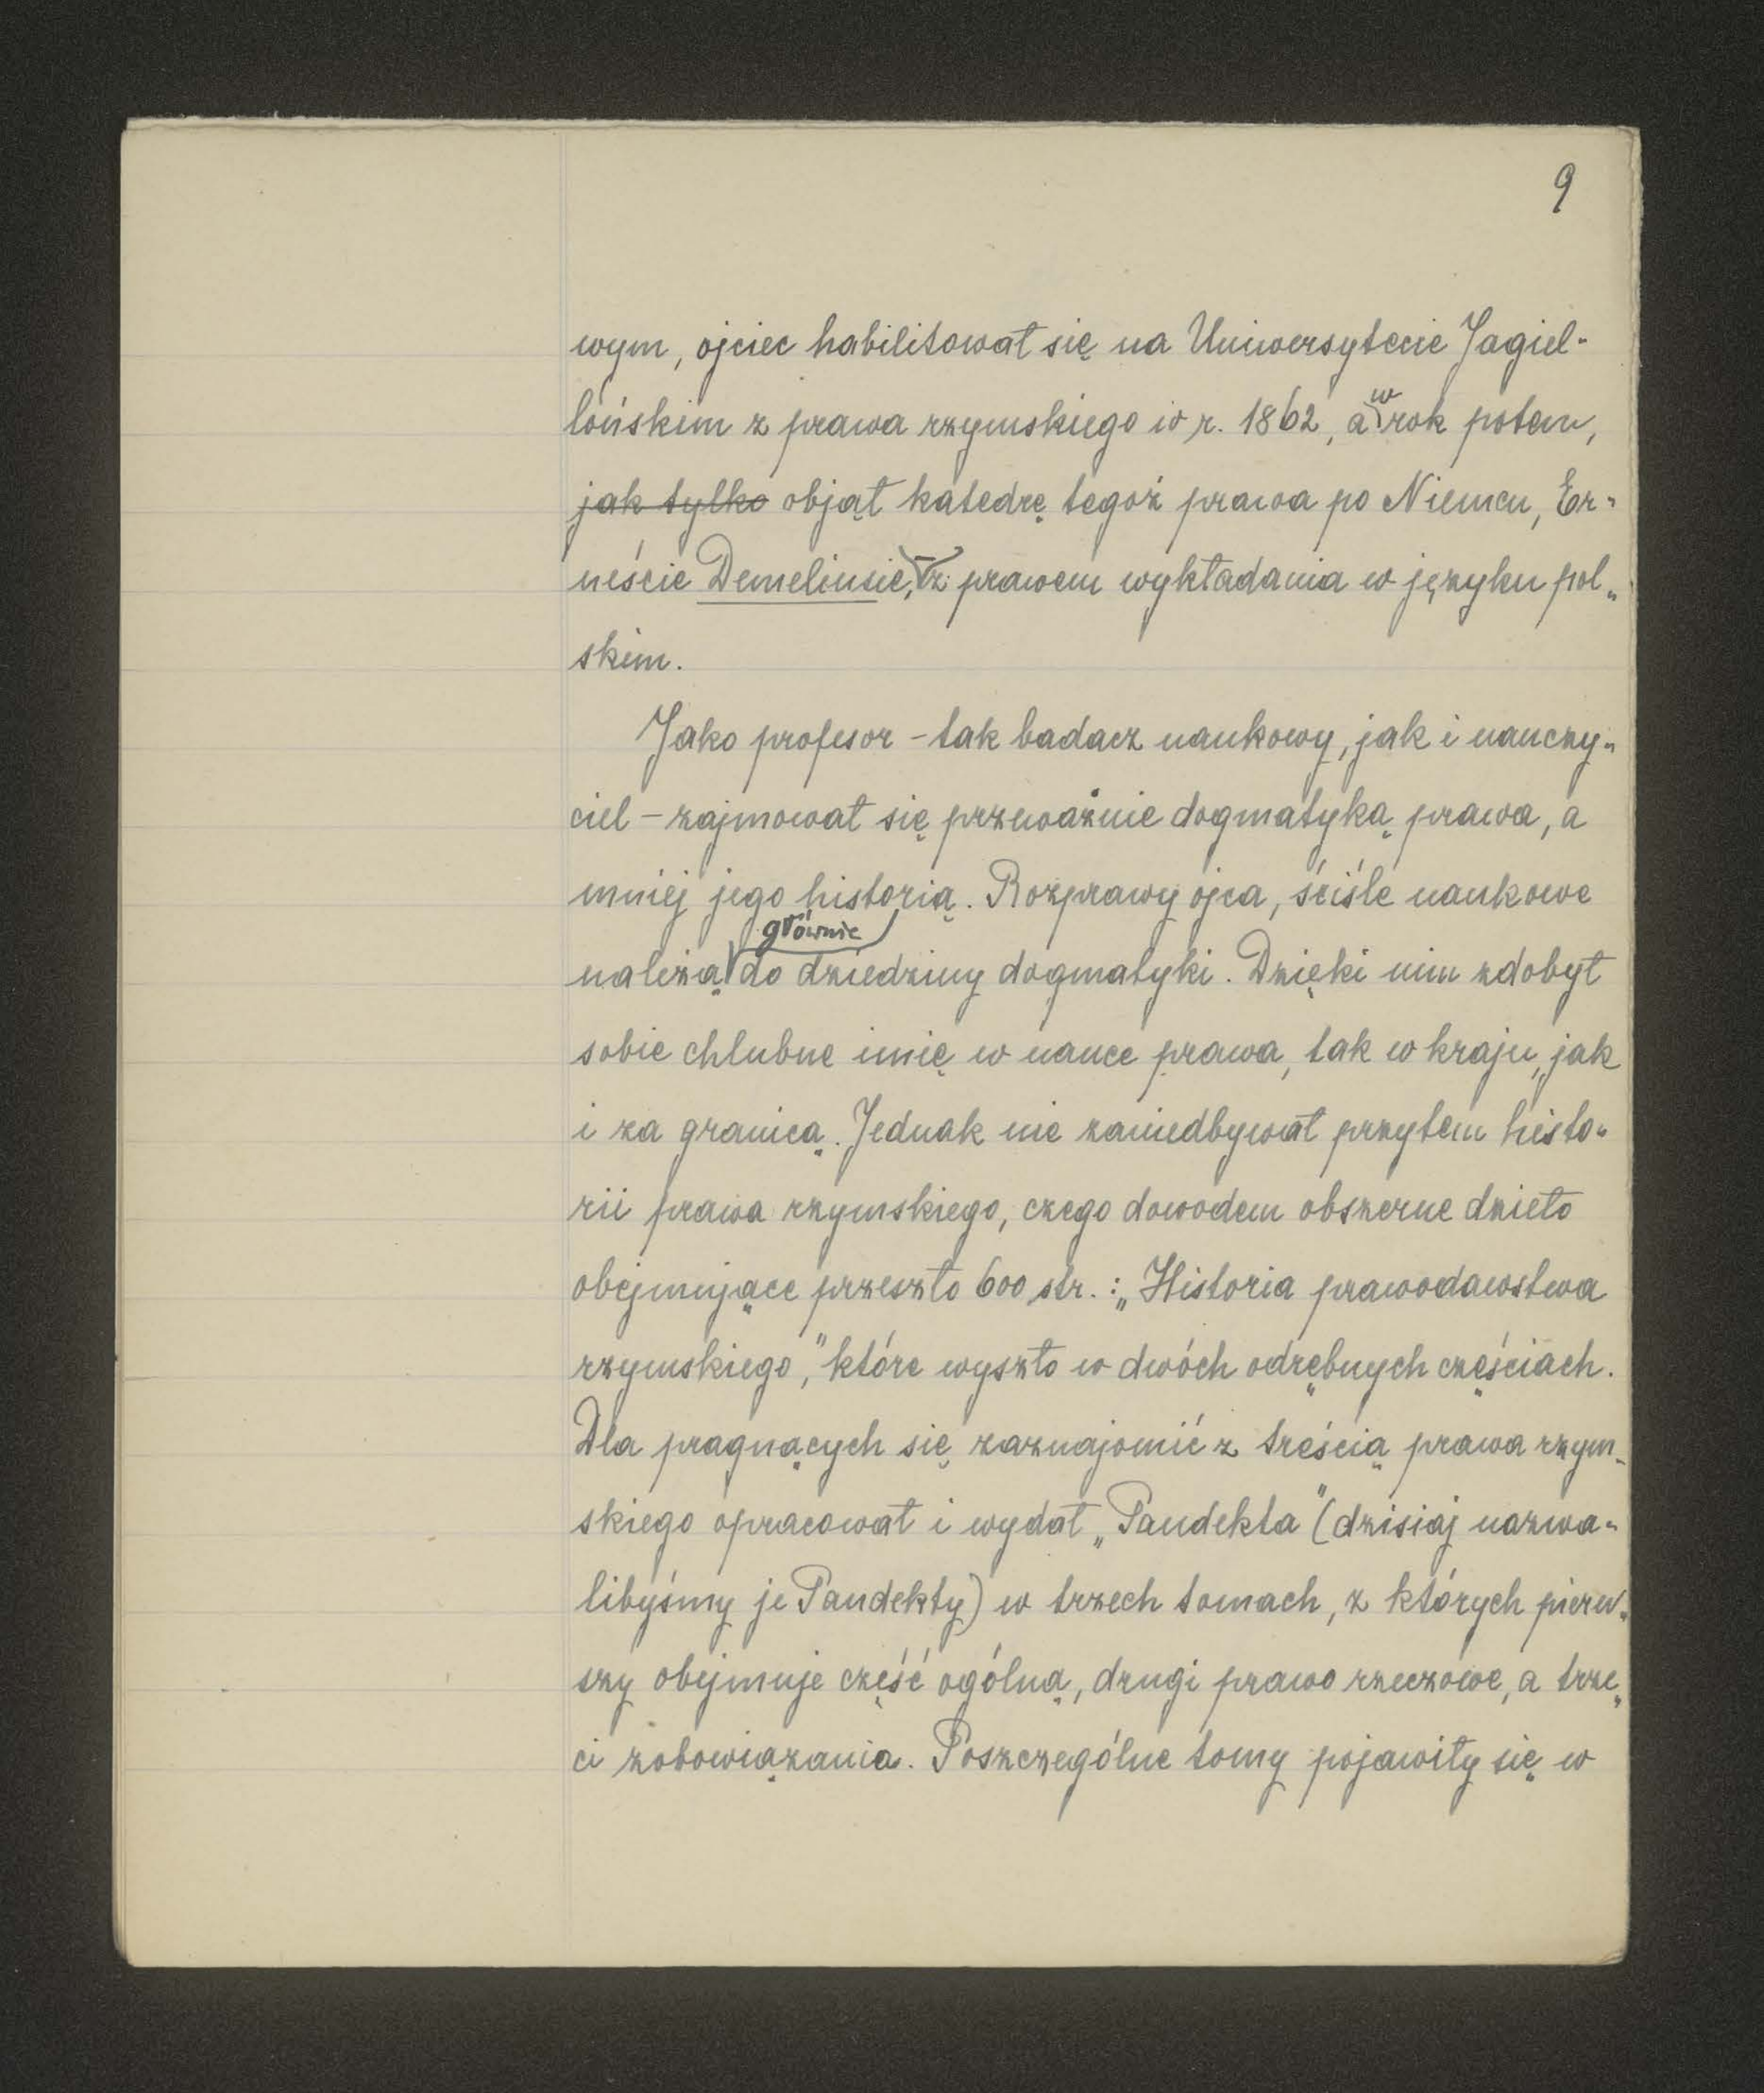 9
wym, ojciec habilitował się na Uniwersytecie Jagiel-
lońskim z prawa rzymskiego w r. 1862, a w rok potem,
jak tylko objął katedrę tegoż prawa po Niemcu, Er-
neście Demeliusie, z prawem wykładania w języku pol-
skim.
Jako profesor - tak badacz naukowy, jak i nauczy-
ciel - zajmował się przeważnie dogmatyką prawa, a
mniej jego historią. Rozprawy ojca, ściśle naukowe
należą głównie do dziedziny dogmatyki. Dzięki nim zdobył
sobie chlubne imię w nauce prawa, tak w kraju, jak
i za granicą. Jednak nie zaniedbywał przytem histo-
rii prawa rzymskiego, czego dowodem obszerne dzieło
obejmujące przeszło 600 str.: „Historia prawodawstwa
rzymskiego," które wyszło w dwóch odrębnych częściach.
Dla pragnących się zaznajomić z treścią prawa rzym-
skiego opracował i wydał „Pandekta" (dzisiaj nazwa-
libyśmy je Pandekty) w trzech tomach, z których pierw-
szy obejmuje część ogólną, drugi prawo rzeczowe, a trze-
ci zobowiązania. Poszczególne tomy pojawiły się w